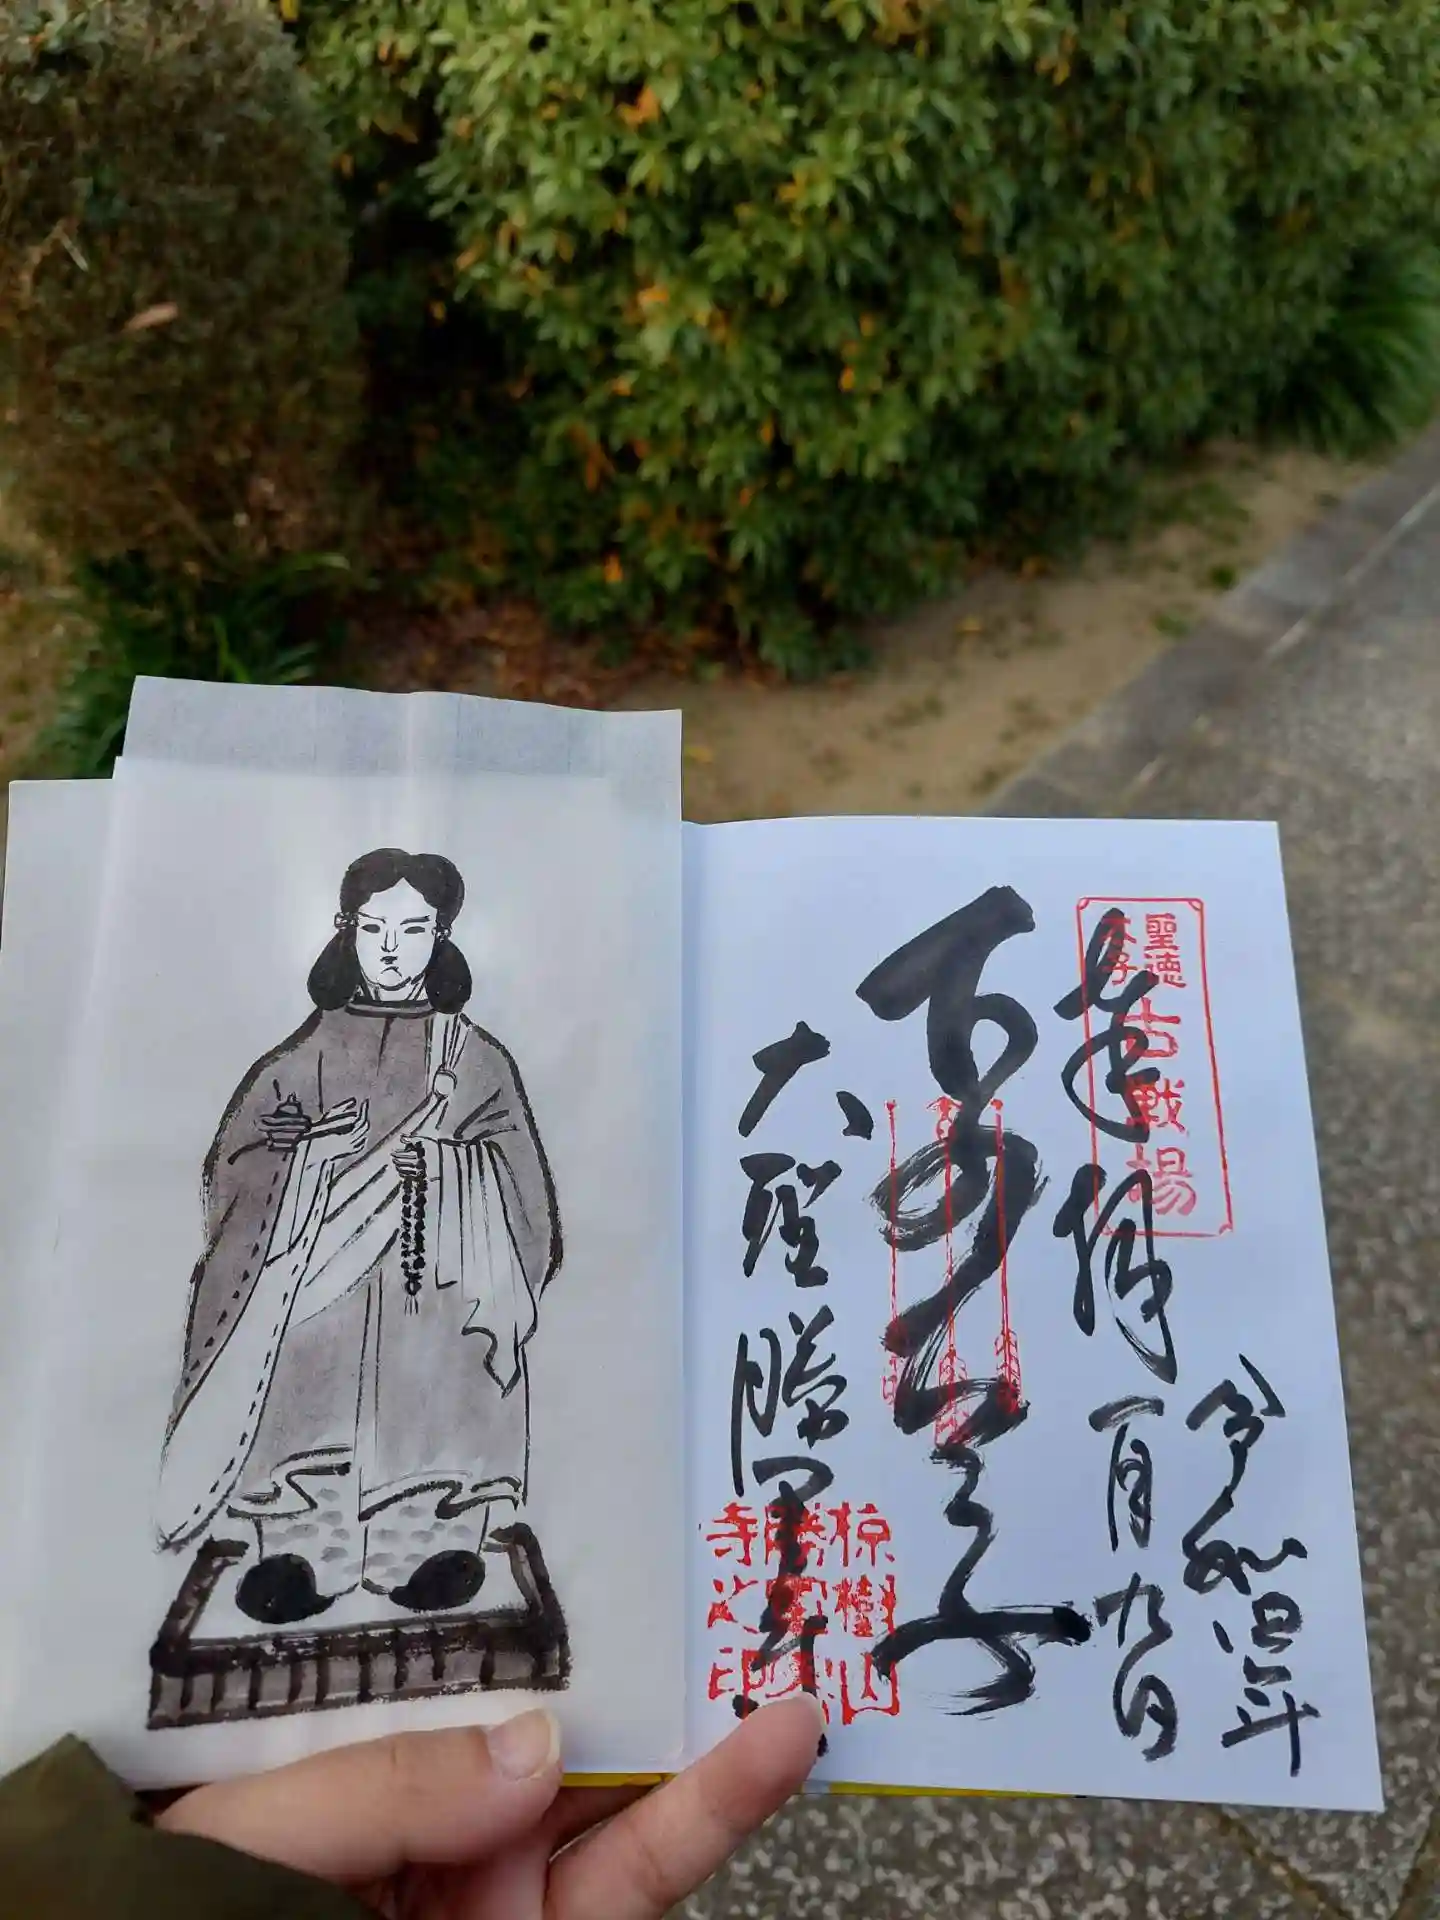 聖徳太子
古戦場
奉拝
令和四年
一月九日
太子
大聖勝軍寺
椋樹山
勝軍
寺之印